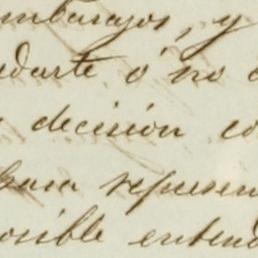 embarazos, y
edarte ó no
decisión co
para represen
osible entend